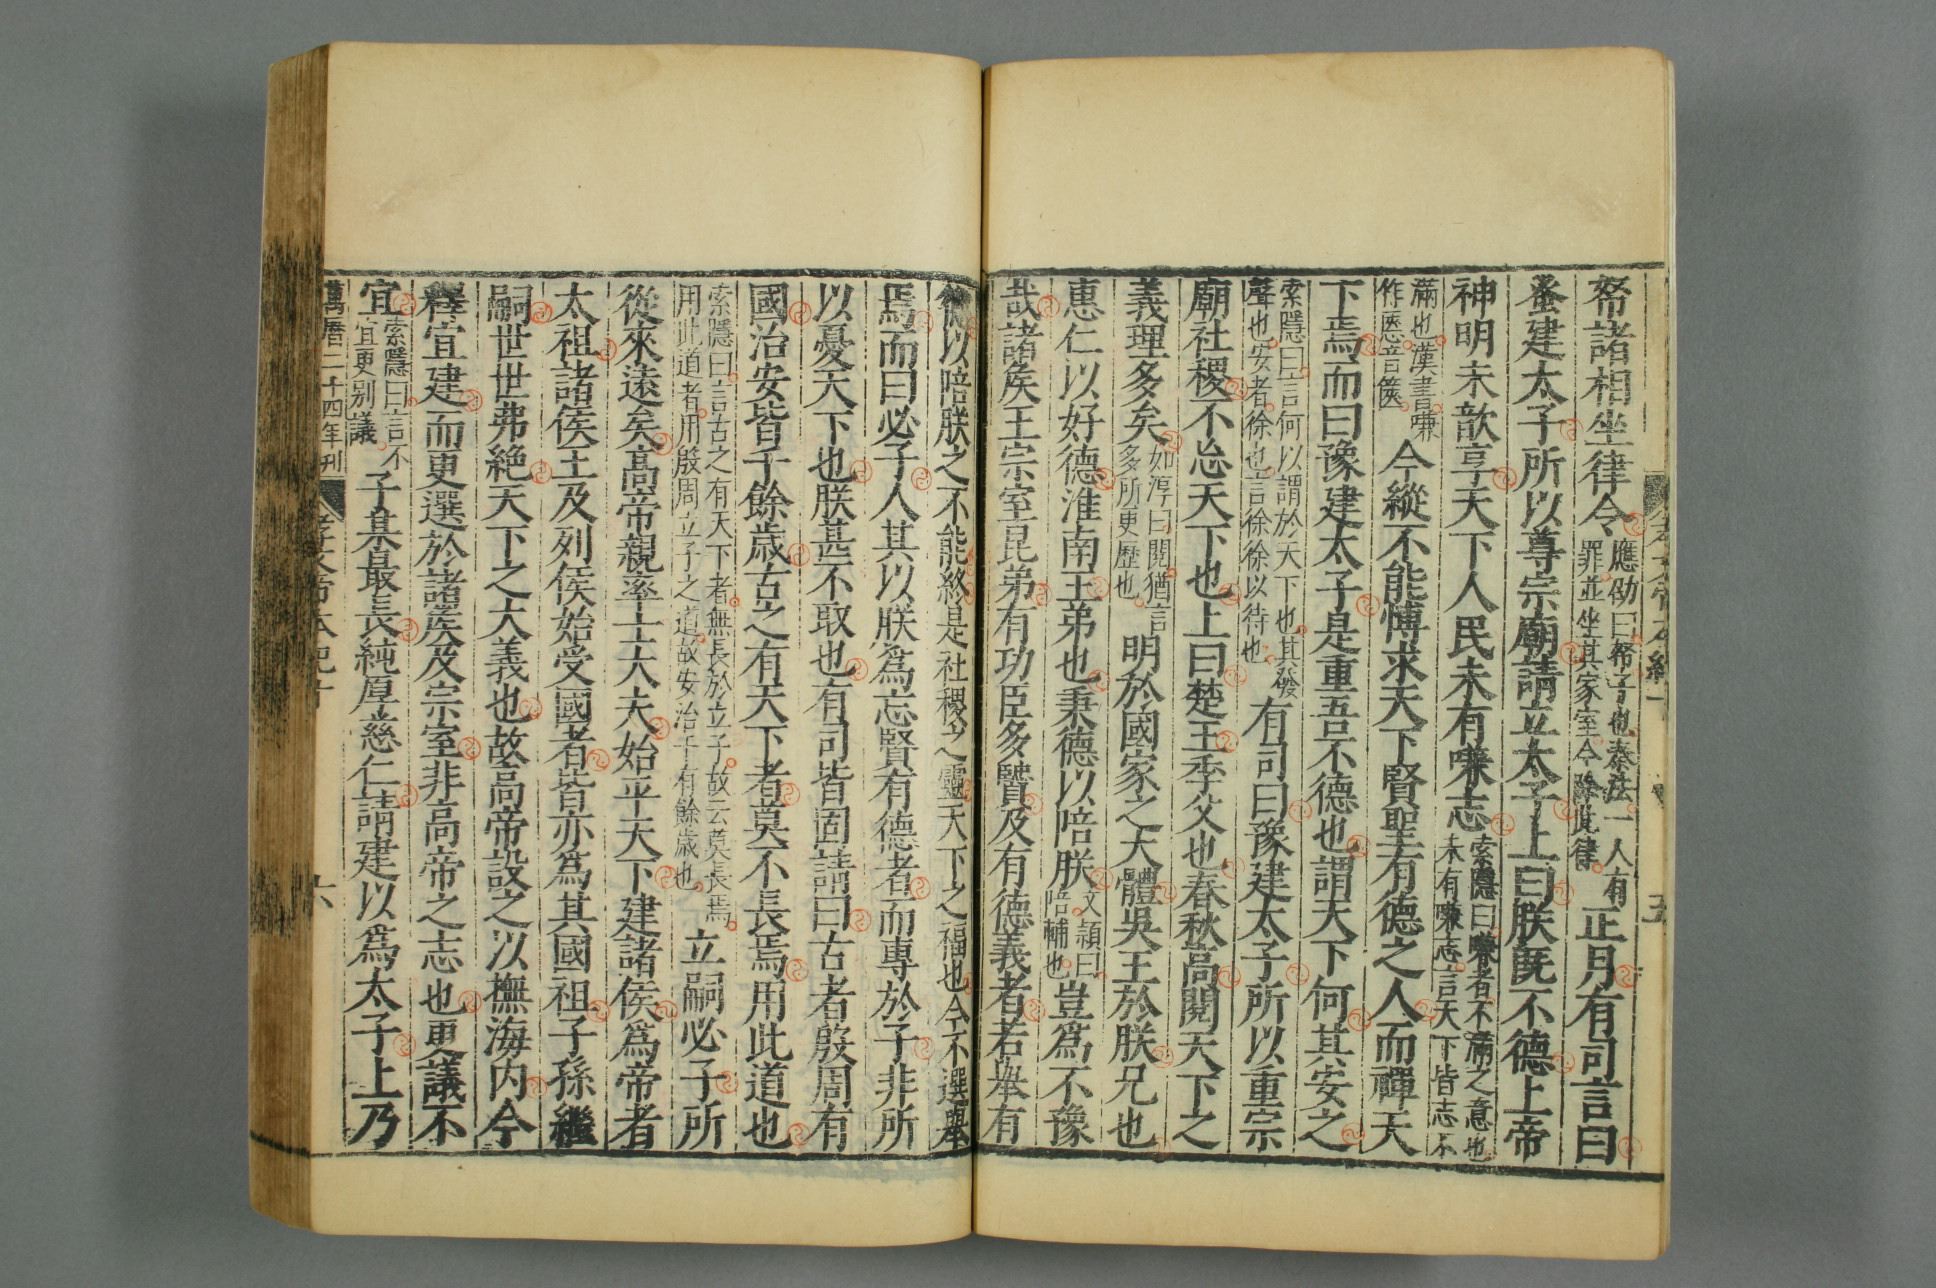 帑諸相坐律令應劭曰帑子也秦法一人有罪並坐其家室今除此律正月有司言曰
蚤建太子所以尊宗廟請立太子上曰朕旣不德上帝
神明未歆享天下人民未有嗛志索隱曰嗛者不滿之意也未有嗛志言天下皆志不
滿也漢書嗛作㥦音篋今縱不能愽求天下賢聖有德之人而禪天
下焉而曰豫建太子是重吾不德也謂天下何其安之
索隱曰言何以謂於天下也其發聲也安者徐也言徐徐以待也有司曰豫建太子所以重宗
廟社稷不忘天下也上曰楚王季父也春秋高閱天下之
義理多矣如淳曰閱猶言多所更歷也明於國家之大體吳王於朕兄也
惠仁以好德淮南王弟也秉德以陪朕文穎曰陪輔也豈爲不豫
哉諸侯王宗室昆弟有功臣多賢及有德義者若舉有
德以陪朕之不能終是社稷之靈天下之福也今不選舉
焉而曰必子人其以朕爲忘賢有德者而專於子非所
以憂天下也朕甚不取也有司皆固請曰古者殷周有
國治安皆千餘歲古之有天下者莫不長焉用此道也
索隱曰言古之有天下者無長於立子故云莫長焉用此道者用殷周立子之道故安治千有餘歲也立嗣必子所
從來遠矣高帝親率士大夫始平天下建諸侯爲帝者
太祖諸侯王及列侯始受國者皆亦爲其國祖子孫繼
嗣世世弗絶天下之大義也故高帝設之以撫海内今
釋宜建而更選於諸侯及宗室非高帝之志也更議不
宜索隱曰言不宜更别議子某最長純厚慈仁請建以爲太子上乃
萬曆二十四年刊 孝文帝本紀十 六